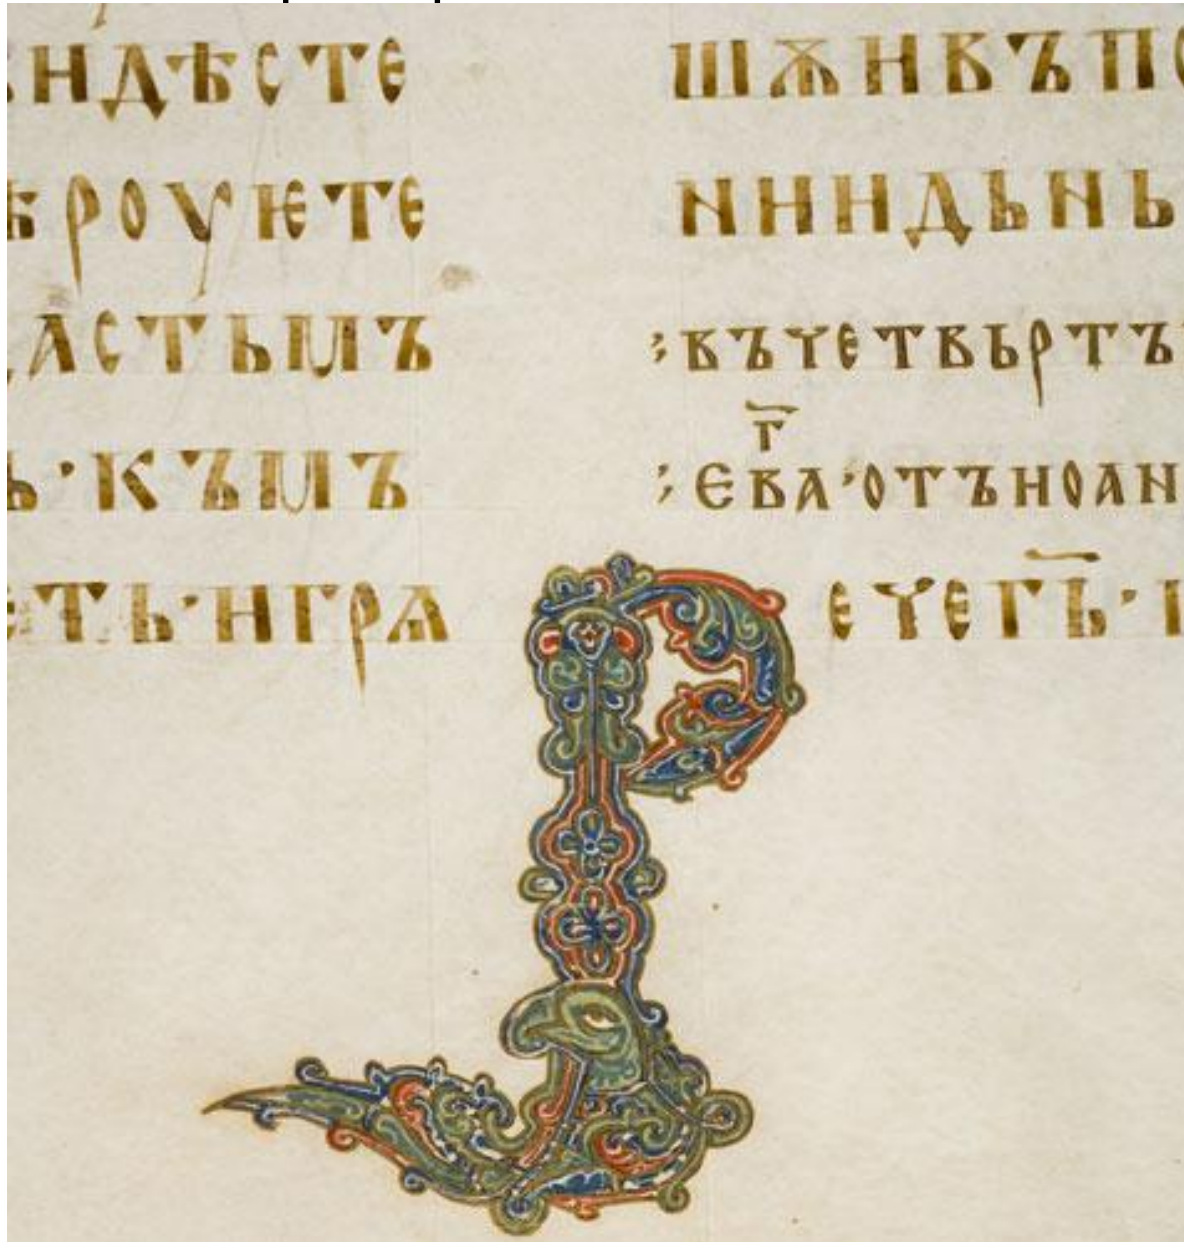 ндѣсте
ѣроуѥте
астьмъ
ь·къмъ
ть·нгрѧ
шѫнвъпо
ннндьнь
въчетвьртъ
г҃
єва·отъноан
Р ечегь҃·